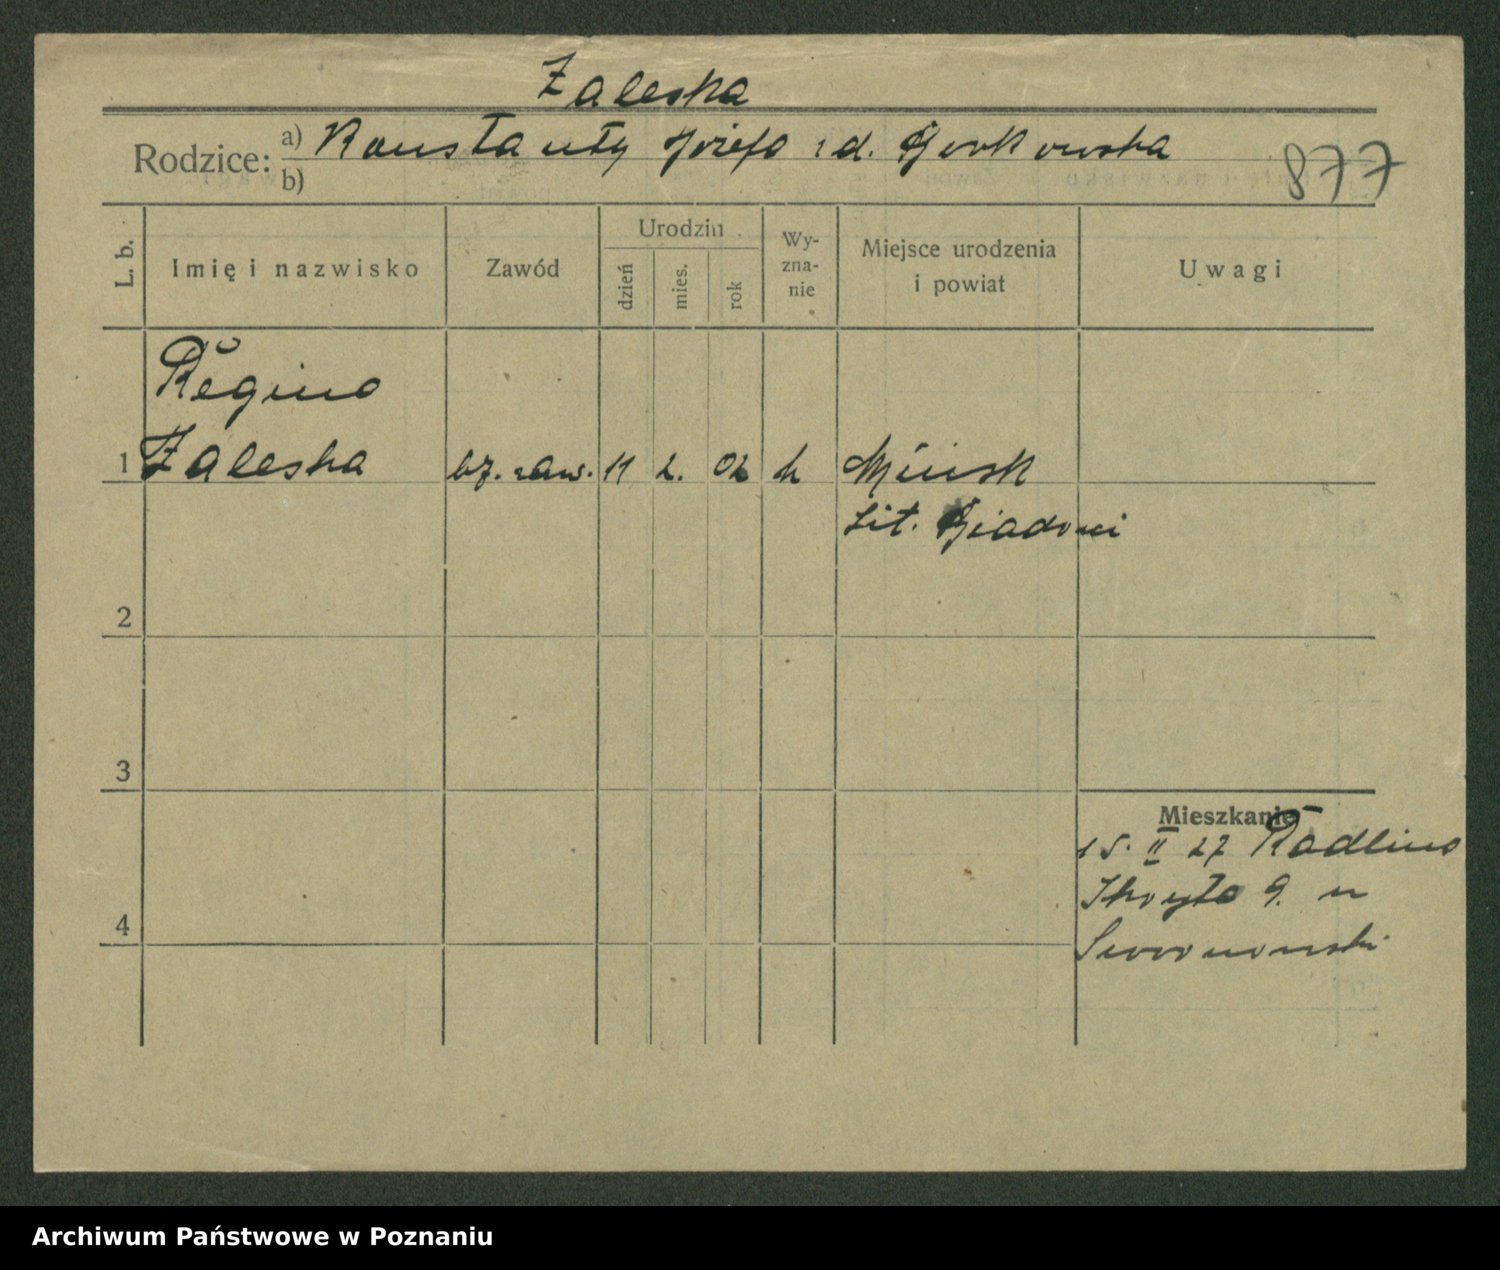 Zaleska
Rodzice: a) Konstanty Józefa z d. Gorkowska
b)
877
L. b. Imię i nazwisko Zawód Urodzin dzień mies. rok Wyznanie Miejsce urodzenia i powiat Uwagi
Regina
1 Zaleska bz. zaw. 11 2. 02 k Mińsk
Lit.
2
3
Mieszkanie
15. II 27 Radlina
9. u
4
Archiwum Państwowe w Poznaniu